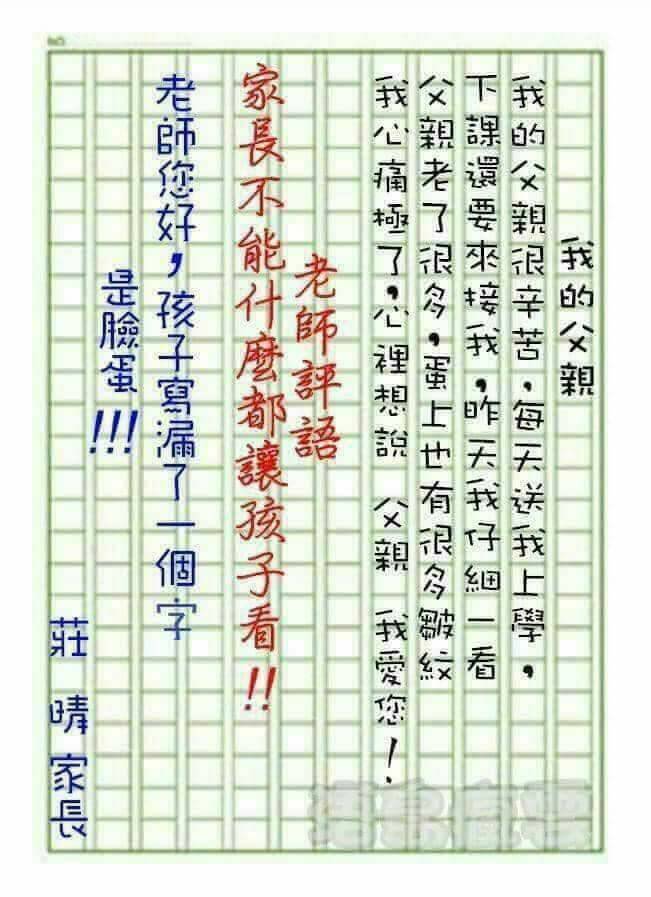 我的父親
我的父親很辛苦，每天送我上學，
下課還要來接我，昨天我仔細一看
父親老了很多，蛋上也有很多皺紋
我心痛極了，心裡想說 父親 我愛您！
老師評語
家長不能什麼都讓孩子看!!
老師您好，孩子寫漏了一個字
是臉蛋!!!
莊 晴 家長